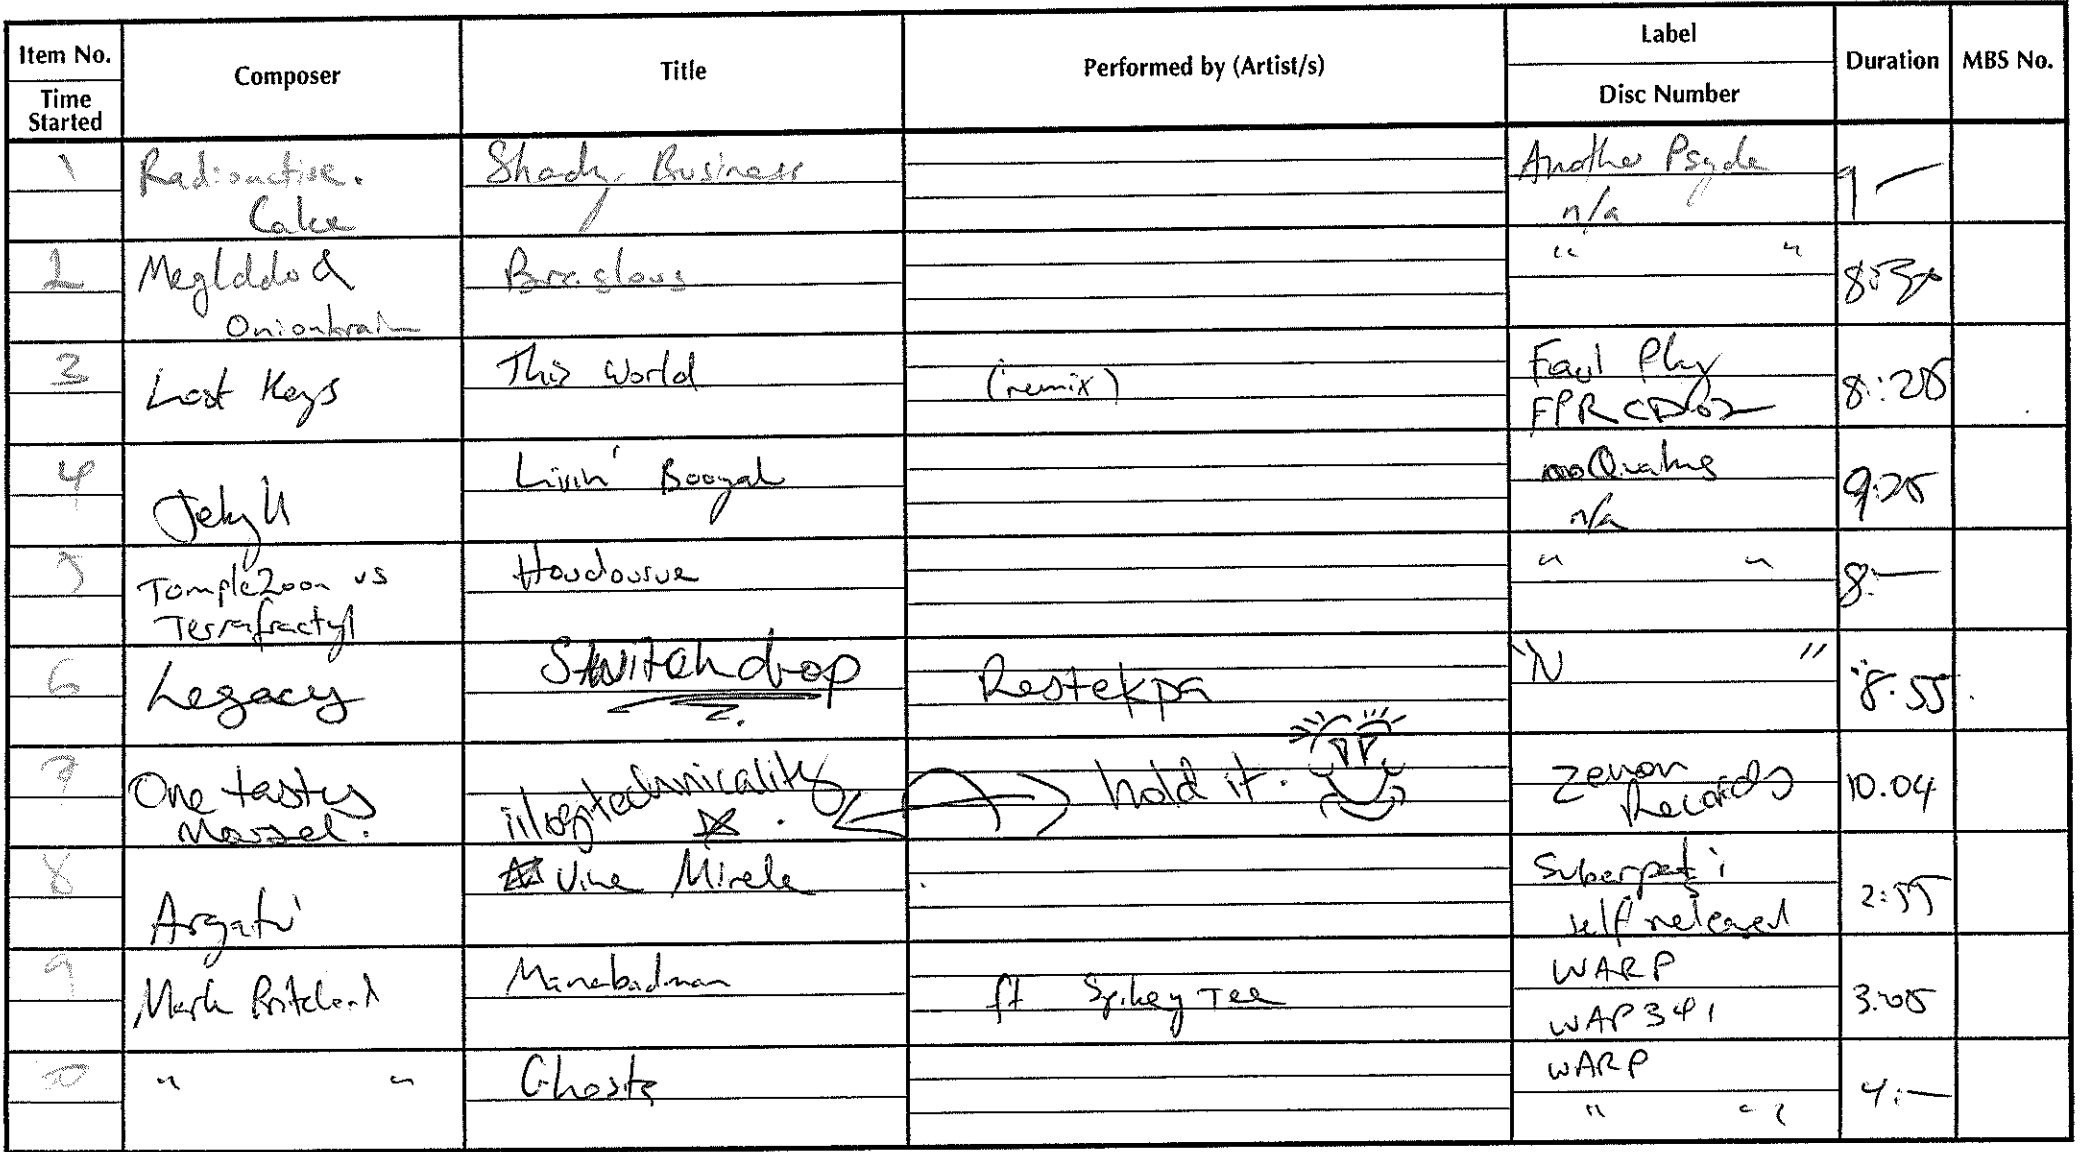 Item No.
Time
Started
Composer
Title
Performed by (Artist/s)
Label
Disc Number
Duration
MBS No.
1
Radioactive.
Cake
Shady Business
Another Psyde
n/a
9 —
2
Megiddo &
Onionbrain
"        "
8:30
3
Lost Keys
This World
(remix)
Faul Play
FPRCD02
8:25
4
Jekyll
Livin' Booyah
n/a
9:25
5
TempleZoon vs
Terrafractyl
"        "
8:—
6
Legacy
Switchdrop
Restekpa
"N        "
8.55
7
One tasty
Morsel.
illogitechnicality
hold it.
Zenon
Records
10.04
8
Argatu'
self released
2:55
9
Mark Pritchard
Manabadman
ft Spikey Tee
WARP
WAP341
3:05
10
"        "
Ghosts
WARP
"        "
4:—